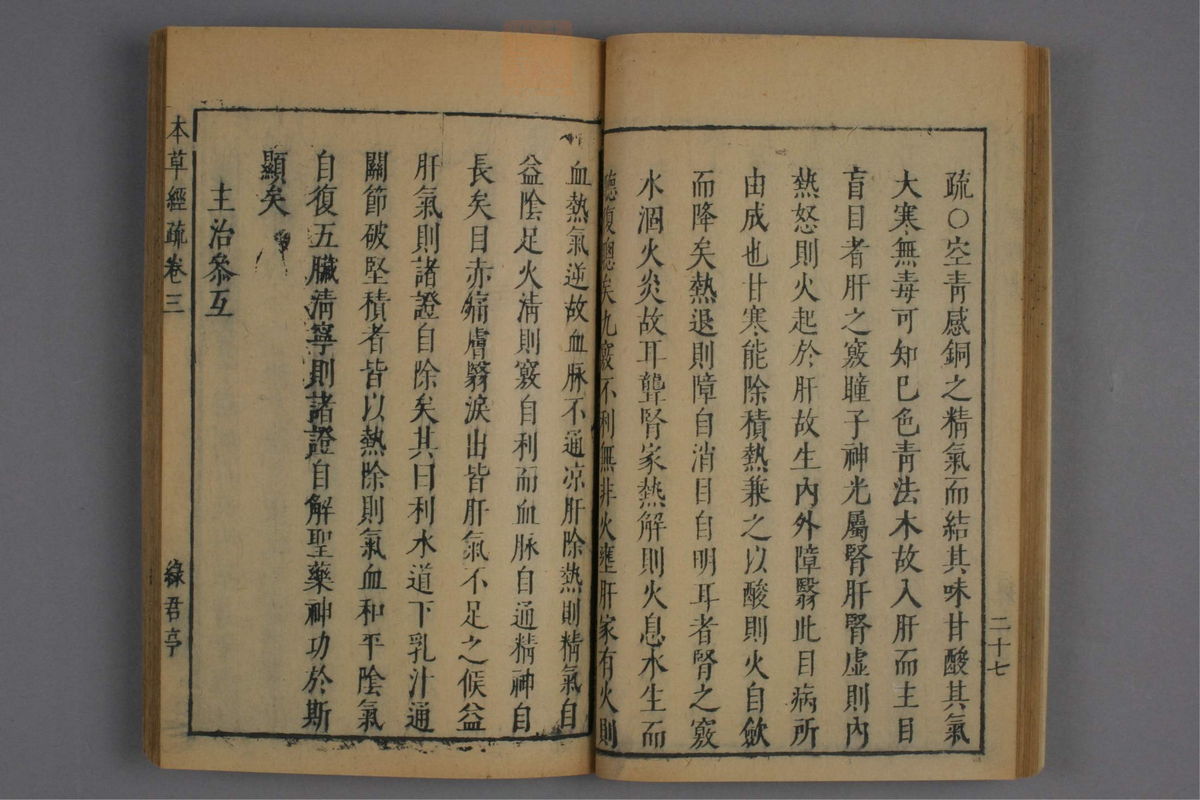 疏〇空青感銅之精氣而結其味甘酸其氣
大寒無毒可知巳色青法木故入肝而主目
盲目者肝之竅瞳子神光屬腎肝腎虛則內
熱怒則火起於肝故生內外障翳此目病所
由成也甘寒能除積熱兼之以酸則火自歛
而降矣熱退則障自消目自明耳者腎之竅
水涸火炎故耳聾腎家熱解則火息水生而
聰復聰矣九竅不利無非火壅肝家有火則
二十七
血熱氣逆故血脉不通凉肝除熱則精氣自
益陰足火清則竅自利而血脉自通精神自
長矣目赤痛膚翳淚出皆肝氣不足之候益
肝氣則諸證自除矣其曰利水道下乳汁通
關節破堅積者皆以熱除則氣血和平陰氣
自復五臟清寧則諸證自解聖藥神功於斯
顯矣
主治叅互
本草經疏卷三
綠君亭